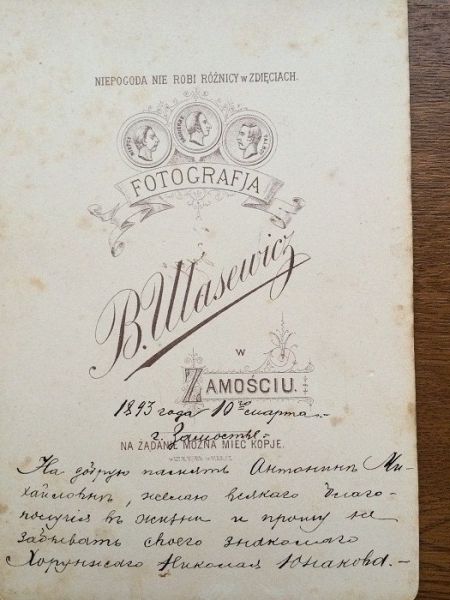 NIEPOGODA NIE ROBI RÓŻNICY w ZDJĘCIACH.
NIEPCE
DAGUERRE
TALBOT
FOTOGRAFJA
B. Ulasewicz
W
ZAMOŚCIU.
1893 года 10го марта.
г. Замостье.
NA ŻĄDANIE MOŻNA MIEĆ KOPJE.
На добрую память Антонинѣ Ми-
хайловнѣ, желаю всякаго благо-
получія въ жизни и прошу не
забывать своего знакомаго
Хорунжаго Николая Юнакова.-